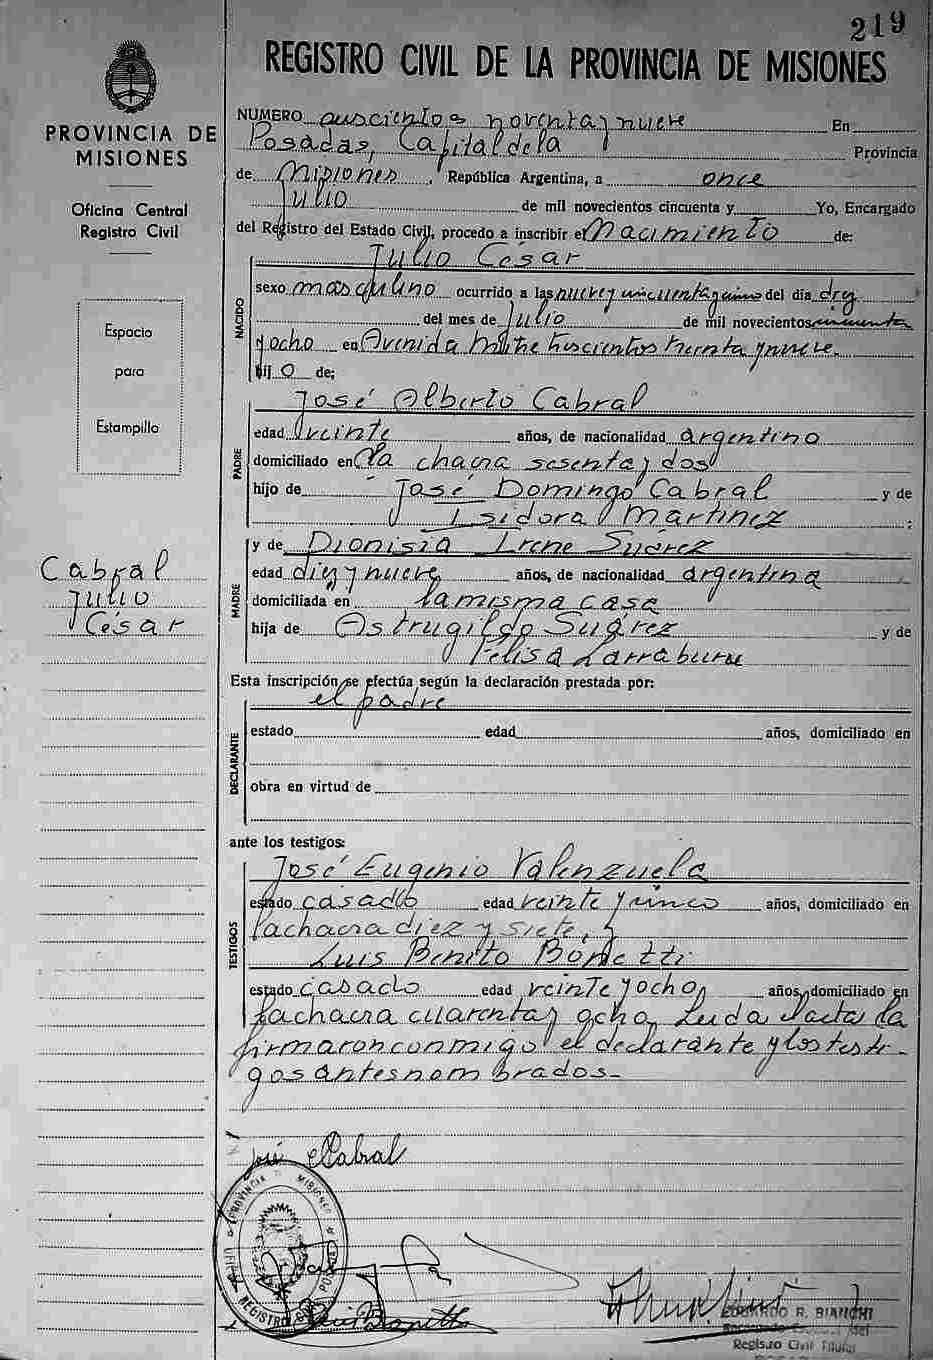 219
REGISTRO CIVIL DE LA PROVINCIA DE MISIONES
PROVINCIA DE
MISIONES
Oficina Central
Registro Civil
Espacio
para
Estampillo
Cabral
Julio
César
NUMERO duscientos noventa y nueve En
Posadas, Capital de la Provincia
de Misiones, República Argentina, a once
Julio de mil novecientos cincuenta y Yo, Encargado
del Registro del Estado Civil, procedo a inscribir el Nacimiento de:
NACIDO
Julio César
sexo masculino ocurrido a las nueve y cincuenta y cinco del día diez
del mes de Julio de mil novecientos cincuenta
y ocho en Avenida Mitre trescientos treinta y nueve.
hij o de:
PADRE
José Alberto Cabral
edad veinte años, de nacionalidad argentino
domiciliado en la chacra sesenta y dos
hijo de José Domingo Cabral y de
Isidora Martinez :
MADRE
y de Dionisia Irene Suárez
edad diez y nueve años, de nacionalidad argentina
domiciliada en la misma casa
hija de Astrugildo Suárez y de
Felisa Larraburu
Esta inscripción se efectúa según la declaración prestada por:
el padre
DECLARANTE
estado edad años, domiciliado en
obra en virtud de
ante los testigos:
TESTIGOS
José Eugenio Valenzuela
estado casado edad veinte y cinco años, domiciliado en
la chacra diez y siete, y
Luis Benito Bonetti
estado casado edad veinte y ocho, años, domiciliado en
la chacra cuarenta y ocho, Leida el acta la
firmaron conmigo el declarante y los testi-
gos antes nombrados-
José Cabral
PROVINCIA DE MISIONES
REGISTRO
Luis Bonetti
EDUARDO R. BIANCHI
Registro Civil Titular